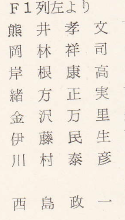 F1列左より
熊井孝文
岡林祥司
岸根康高
緒方正実
金沢万里
伊藤民生
川村泰彦
西島政一